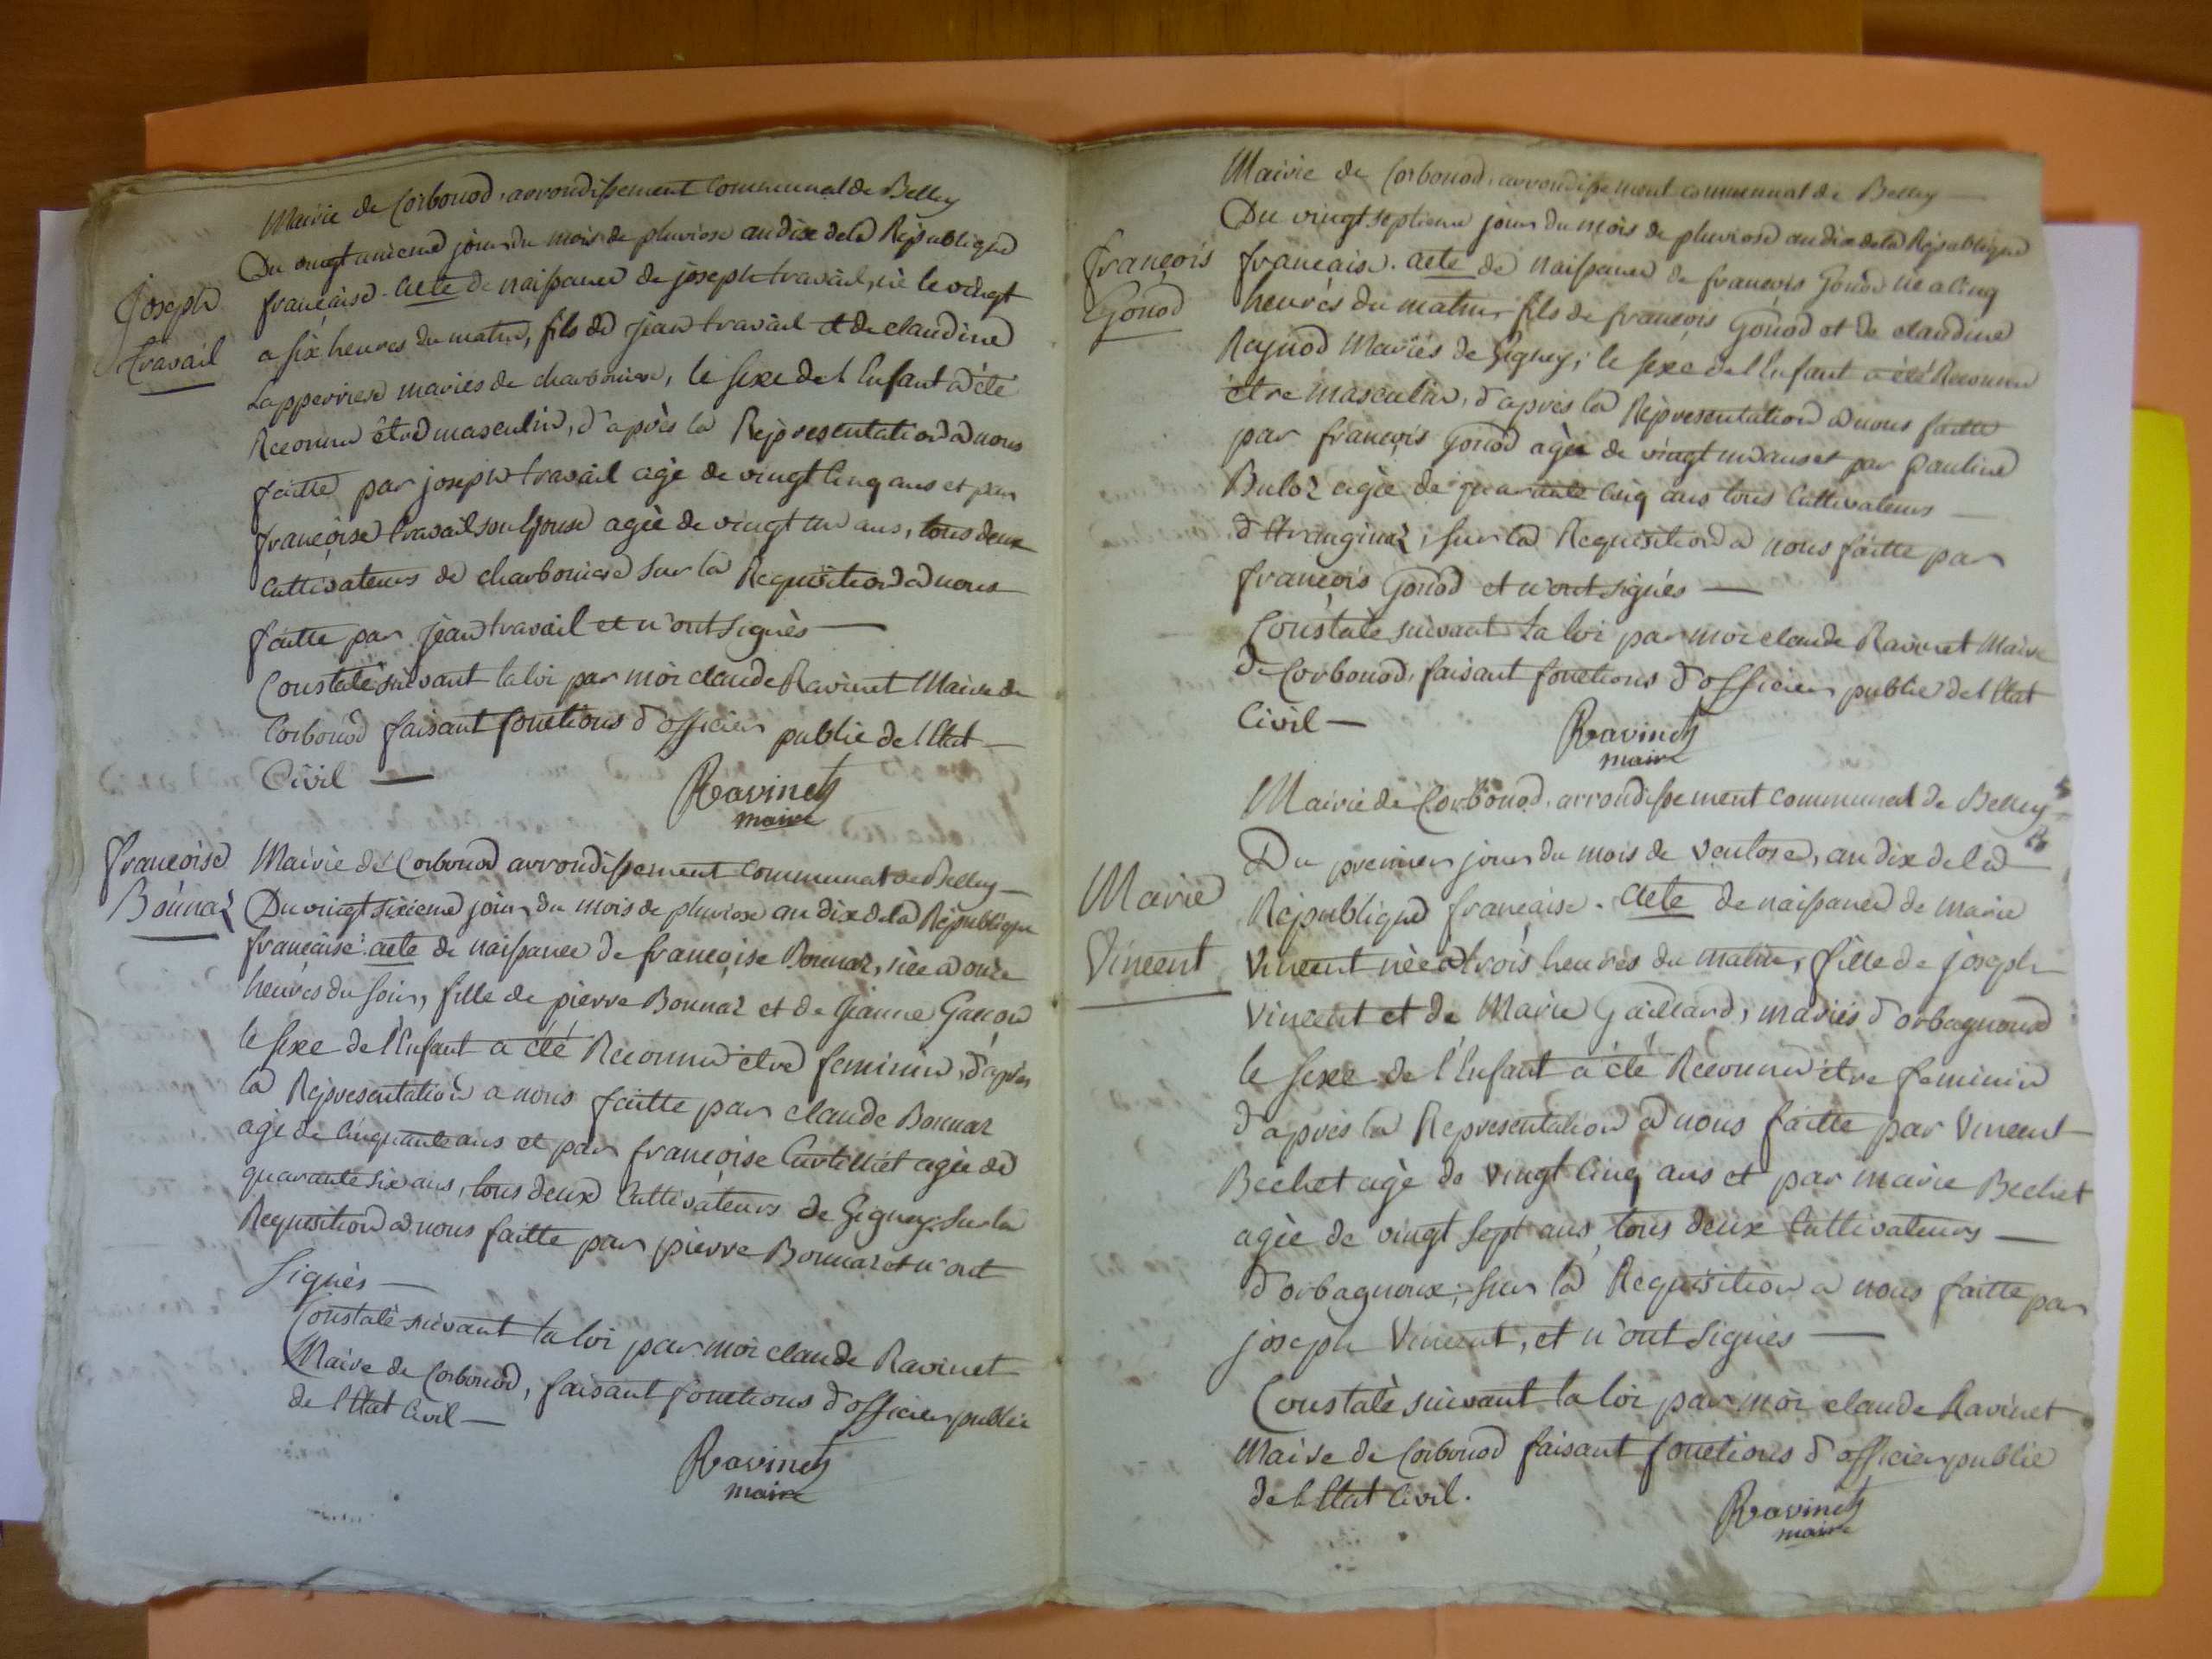 Mairie de Corbonod, arrondissement Communal de Belley
Joseph
travail
Du vingt unieme jour du mois de pluviose an dix de la Republique
française. Acte de naissance de joseph travail, né le vingt
a six heures du matin, fils de jean travail et de claudine
Lapperriere mariés de charboniere, le sexe de l Enfant a été
Reconnu être masculin, d'après la Representation a nous
faitte par joseph travail agé de vingt Cinq ans et par
françoise travail son Epouse agée de vingt un ans, tous deux
Cultivateurs de charboniere sur la Requisition a nous
faitte par jean travail et n'ont signès
Constaté suivant la loi par moi claude Ravinet Maire de
Corbonod faisant fonctions d officier public de l Etat
Civil
Ravinet
maire
françoise
Bonnaz
Mairie de Corbonod arrondissement Communal de Belley
Du vingt sixieme jour du mois de pluviose an dix de la Republique
française. acte de naissance de françoise Bonnaz, née a onze
heures du soir, fille de pierre Bonnaz et de Jeanne
le sexe de l'Enfant a été Reconnu etre feminin, d'après
la Representation a nous faitte par claude Bonnaz
agé de Cinquante ans et par françoise Curtilliet agée de
quarante six ans, tous deux Cultivateurs de Gigney. Sur la
Requisition a nous faitte par pierre Bonnaz et n'ont
signès
Constaté suivant la loi par moi claude Ravinet
Maire de Corbonod, faisant fonctions d officier public
de l Etat Civil
Ravinet
maire
Mairie de Corbonod, arrondissement communal de Belley
françois
Gonod
Du vingt septieme jour du mois de pluviose an dix de la Republique
francaise. acte de naissance de françois Gonod né a Cinq
heurès du matin fils de françois Gonod et de claudine
Raynod Mariés de Gigney; le sexe de l Enfant a été Reconnu
être masculin, d'après la Representation a nous faitte
par françois Gonod agée de vingt un ans et par Pauline
Buloz agée de quarante Cinq ans tous Cultivateurs
d'Etranginaz; sur la Requisition a nous faitte par
françois Gonod et n'ont signés
Constaté suivant la loi par moi claude Ravinet Maire
de Corbonod, faisant fonctions d officier public de l Etat
Civil
Ravinet
maire
Mairie de Corbonod, arrondissement communal de Belley
Marie
Vincent
Du premier jour du mois de ventose, an dix de la
Republique française. Acte de naissance de marie
Vincent née a trois heurès du matin, fille de joseph
Vincent et de Marie Gaillard, mariés d orbagnoux
le sexe de l'Enfant a été Reconnu être feminin
d'après la Representation a nous faitte par Vincent
Bechet agé de vingt Cinq ans et par marie Bechet
agée de vingt sept ans, tous deux Cultivateurs
d'orbagnoux, sur la Requisition a nous faitte par
joseph Vincent, et n'ont signès
Constatè suivant la loi par moi claude Ravinet
Maire de Corbonod faisant fonctions d officier public
de l Etat Civil.
Ravinet
maire